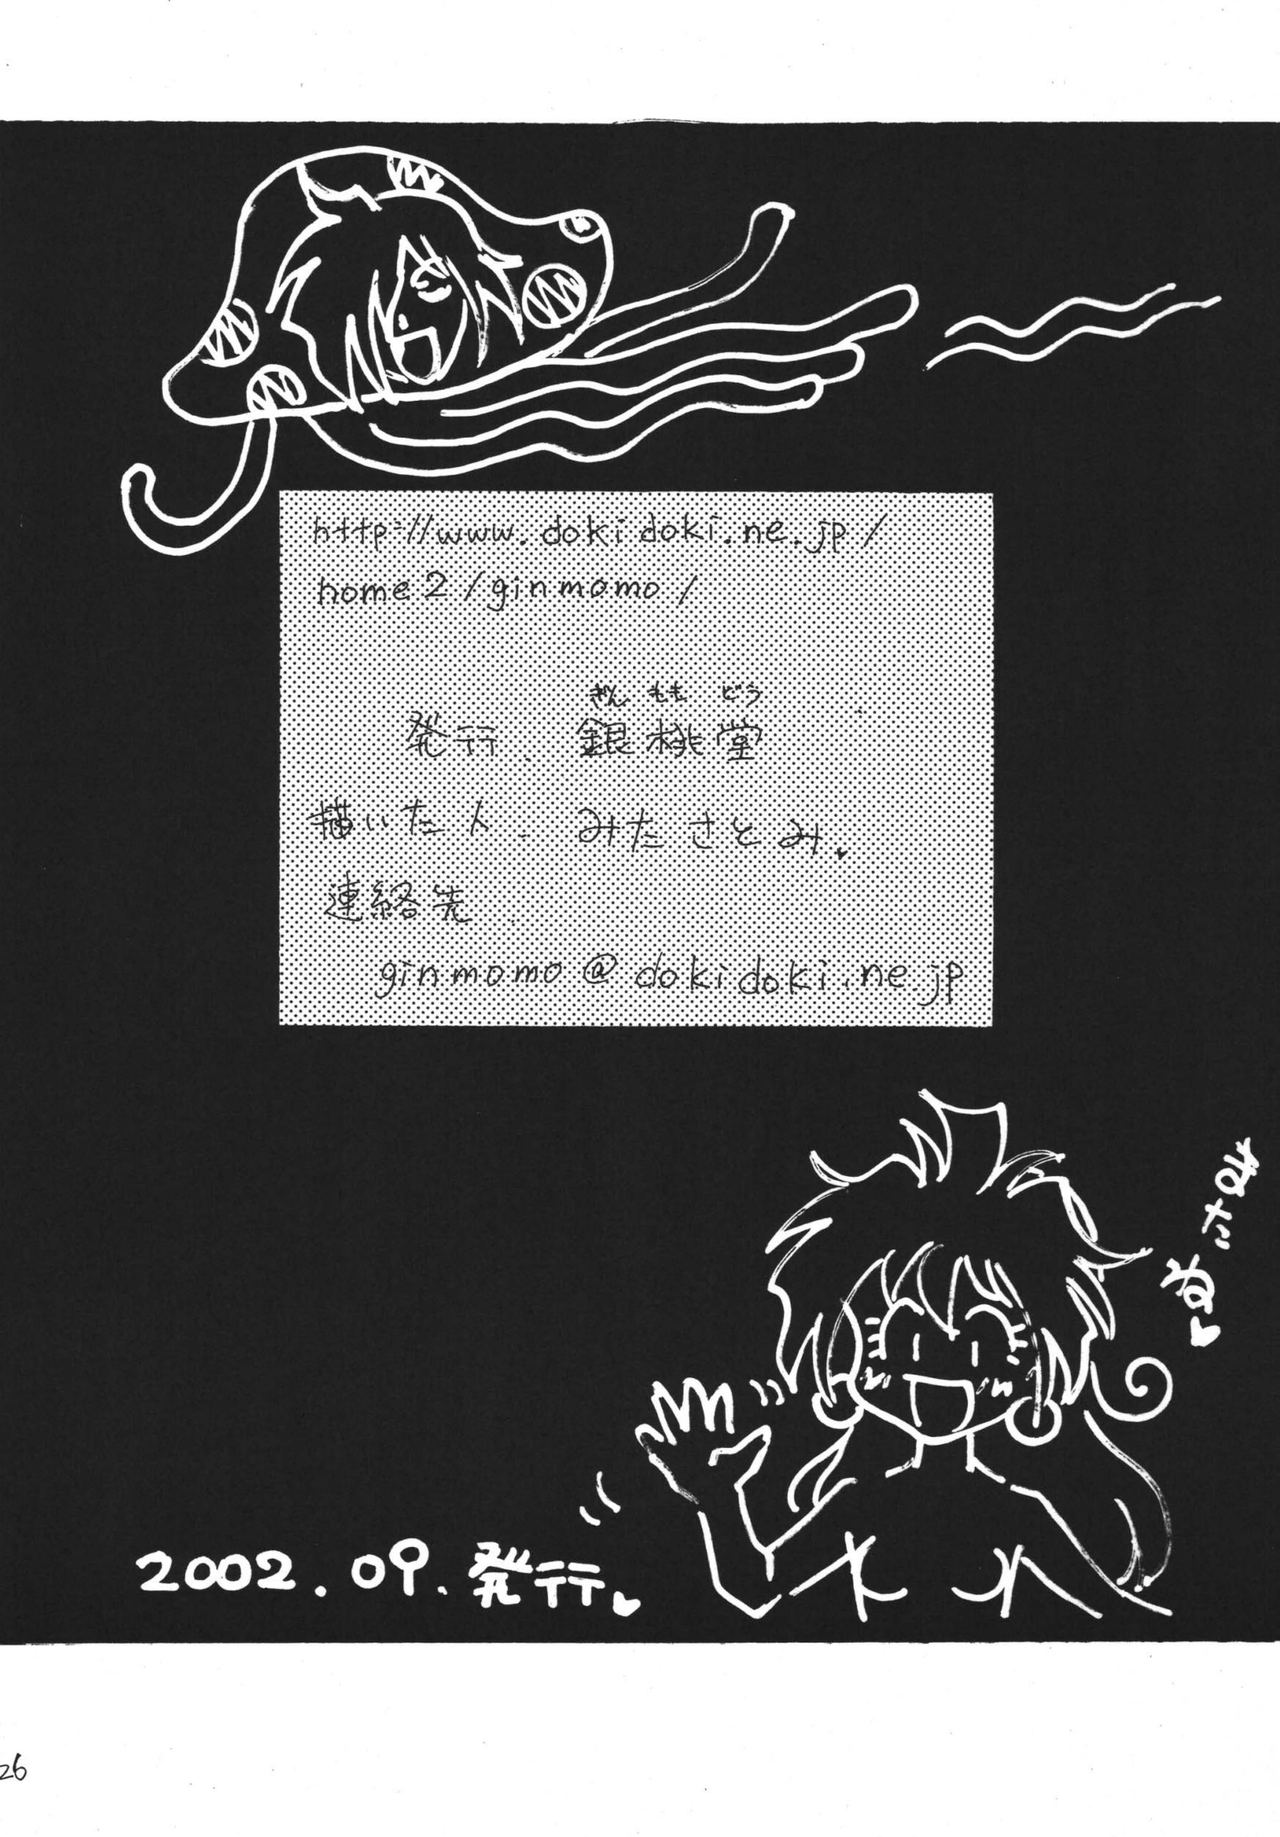 http://www.dokidoki.ne.jp/
home2/ginmomo/
ぎん もも どう
発行. 銀桃堂
描いた人. みたさとみ.
連絡先
ginmomo@dokidoki.ne.jp
2002.09.発行.
26